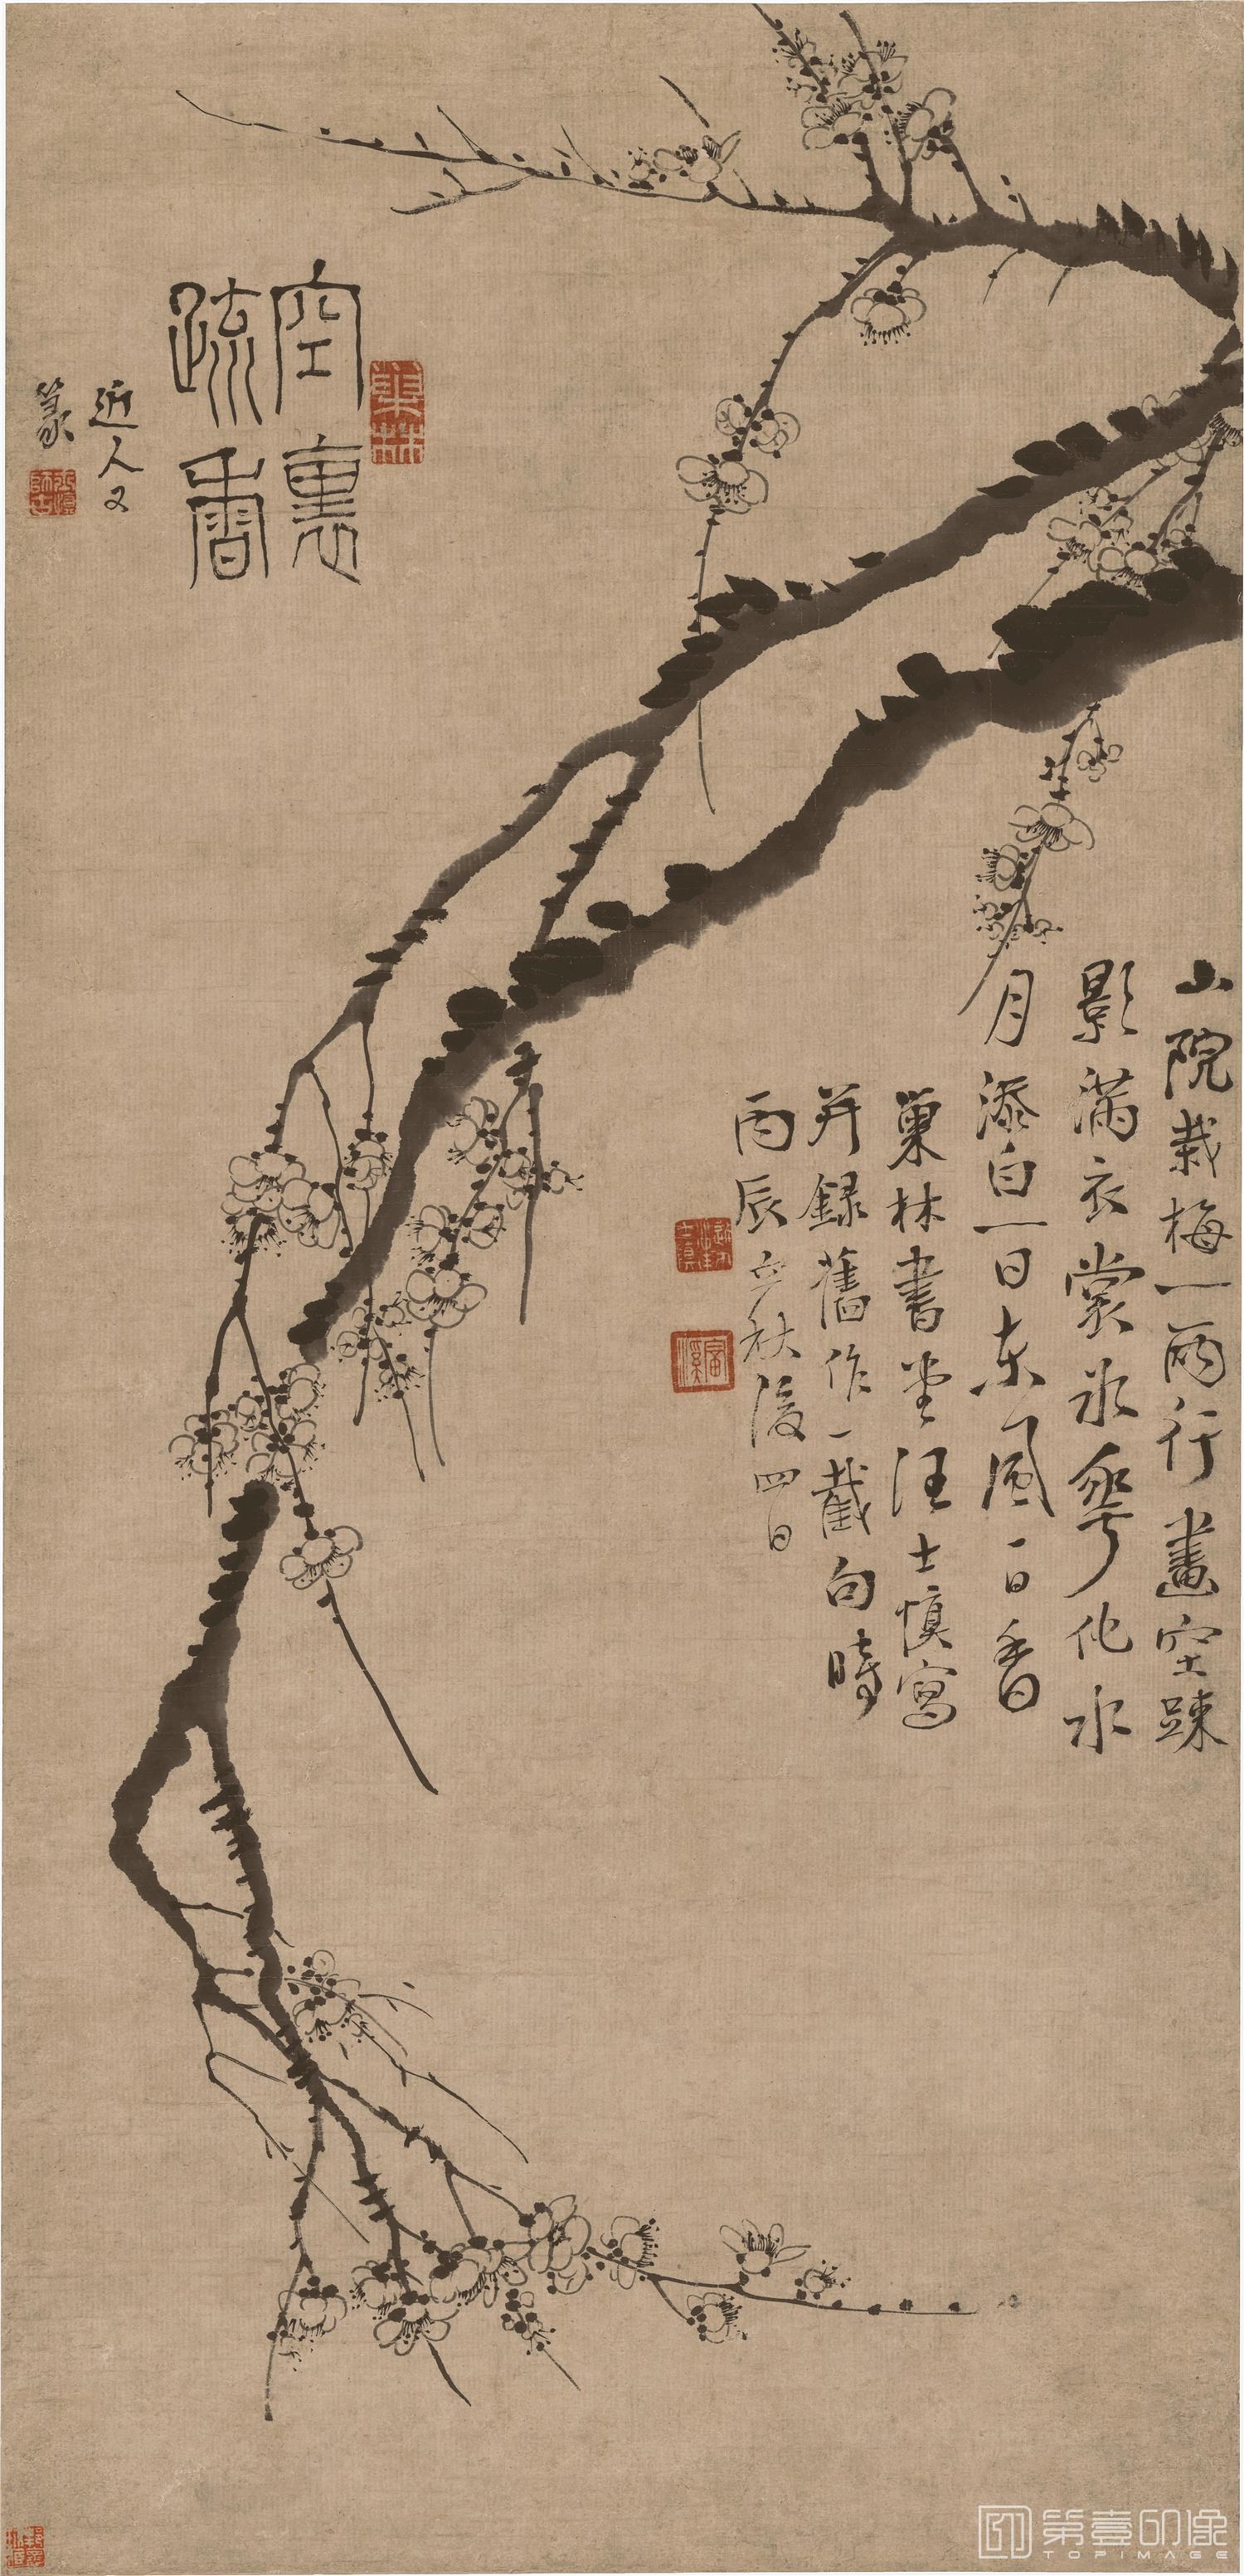 山院栽梅一兩行畫空疎
影滿衣裳冰華化水
月添白一日東風一日香
巢林書堂汪士慎寫
并錄舊作一截句時
丙辰立秋後四日
空裏
疏香
近人又
篆
巢林
第壹印像
TOPIMAGE